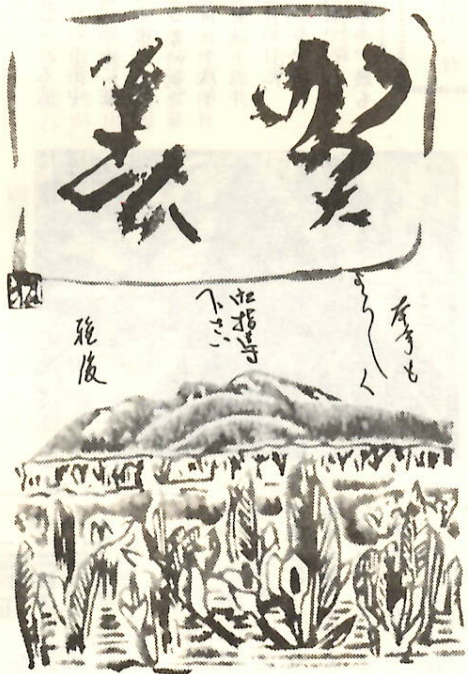 賀春
本年も
よろしく
御指導
下さい
雅俊